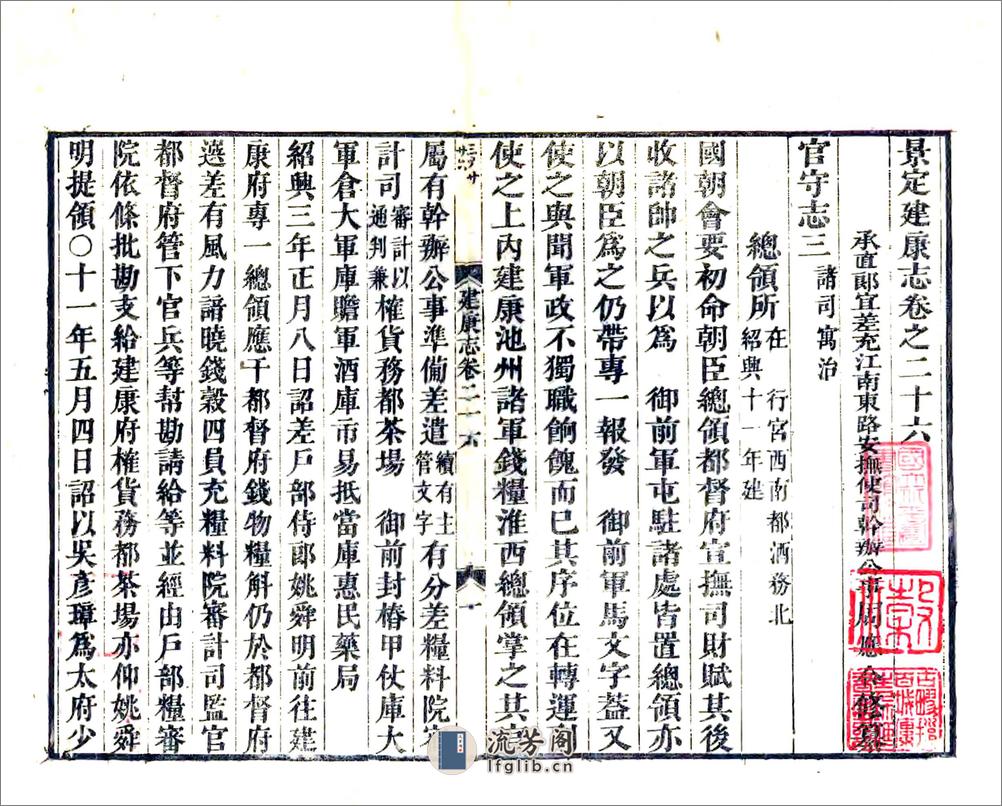 景定建康志卷之二十六
承直郎宜差充江南東路安撫使司幹辦公事周應合修纂
官守志三 諸司寓治
總領所 在 行宮西南都酒務北 紹興十一年建
國朝會要初命朝臣總領都督府宣撫司財賦其後
收諸帥之兵以爲 御前軍屯駐諸處皆置總領亦
以朝臣爲之仍帶專一報發 御前軍馬文字蓋又
使之與聞軍政不獨職餉餽而已其序位在轉運副
使之上內建康池州諸軍錢糧淮西總領掌之其官
建康志卷二十六 一
屬有幹辦公事準備差遣 續有主管文字 有分差糧料院審
計司 審計以通判兼 榷貨務都茶場 御前封樁甲仗庫大
軍倉大軍庫贍軍酒庫市易抵當庫惠民藥局
紹興三年正月八日詔差戶部侍郎姚舜明前往建
康府專一總領應干都督府錢物糧斛仍於都督府
選差有風力諳曉錢穀四員充糧料院審計司監官
都督府管下官兵等幫勘請給等並經由戶部糧審
院依條批勘支給建康府榷貨務都茶場亦仰姚舜
明提領〇十一年五月四日詔以吳彥璋爲太府少
流芳阁
lfglib.cn